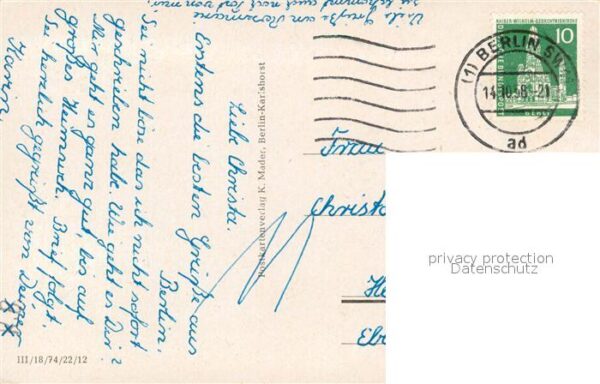 Liebe Christa.
Erstens die besten Grüße aus
Berlin.
Sei nicht böse das ich nicht sofort
geschrieben habe. Wie geht es Dir?
Mir geht es ganz gut, bos auf
großes Heimweh. Brif folgt.
Sei herzlich gegrüßt von Deiner
Karin
xx
Viele Grüße an Rosemarie
sie bekommt auch noch Post von mir.
Postkartenverlag K. Mader, Berlin-Karlshorst
III/18/74/22/12
KAISER-WILHELM-GEDÄCHTNISKIRCHE
10
DEUTSCHE BUNDESPOST
BERLIN
(1) BERLIN SW
14.10.58.-21
ad
Frau
Christa
He
Ebe
privacy protection
Datenschutz